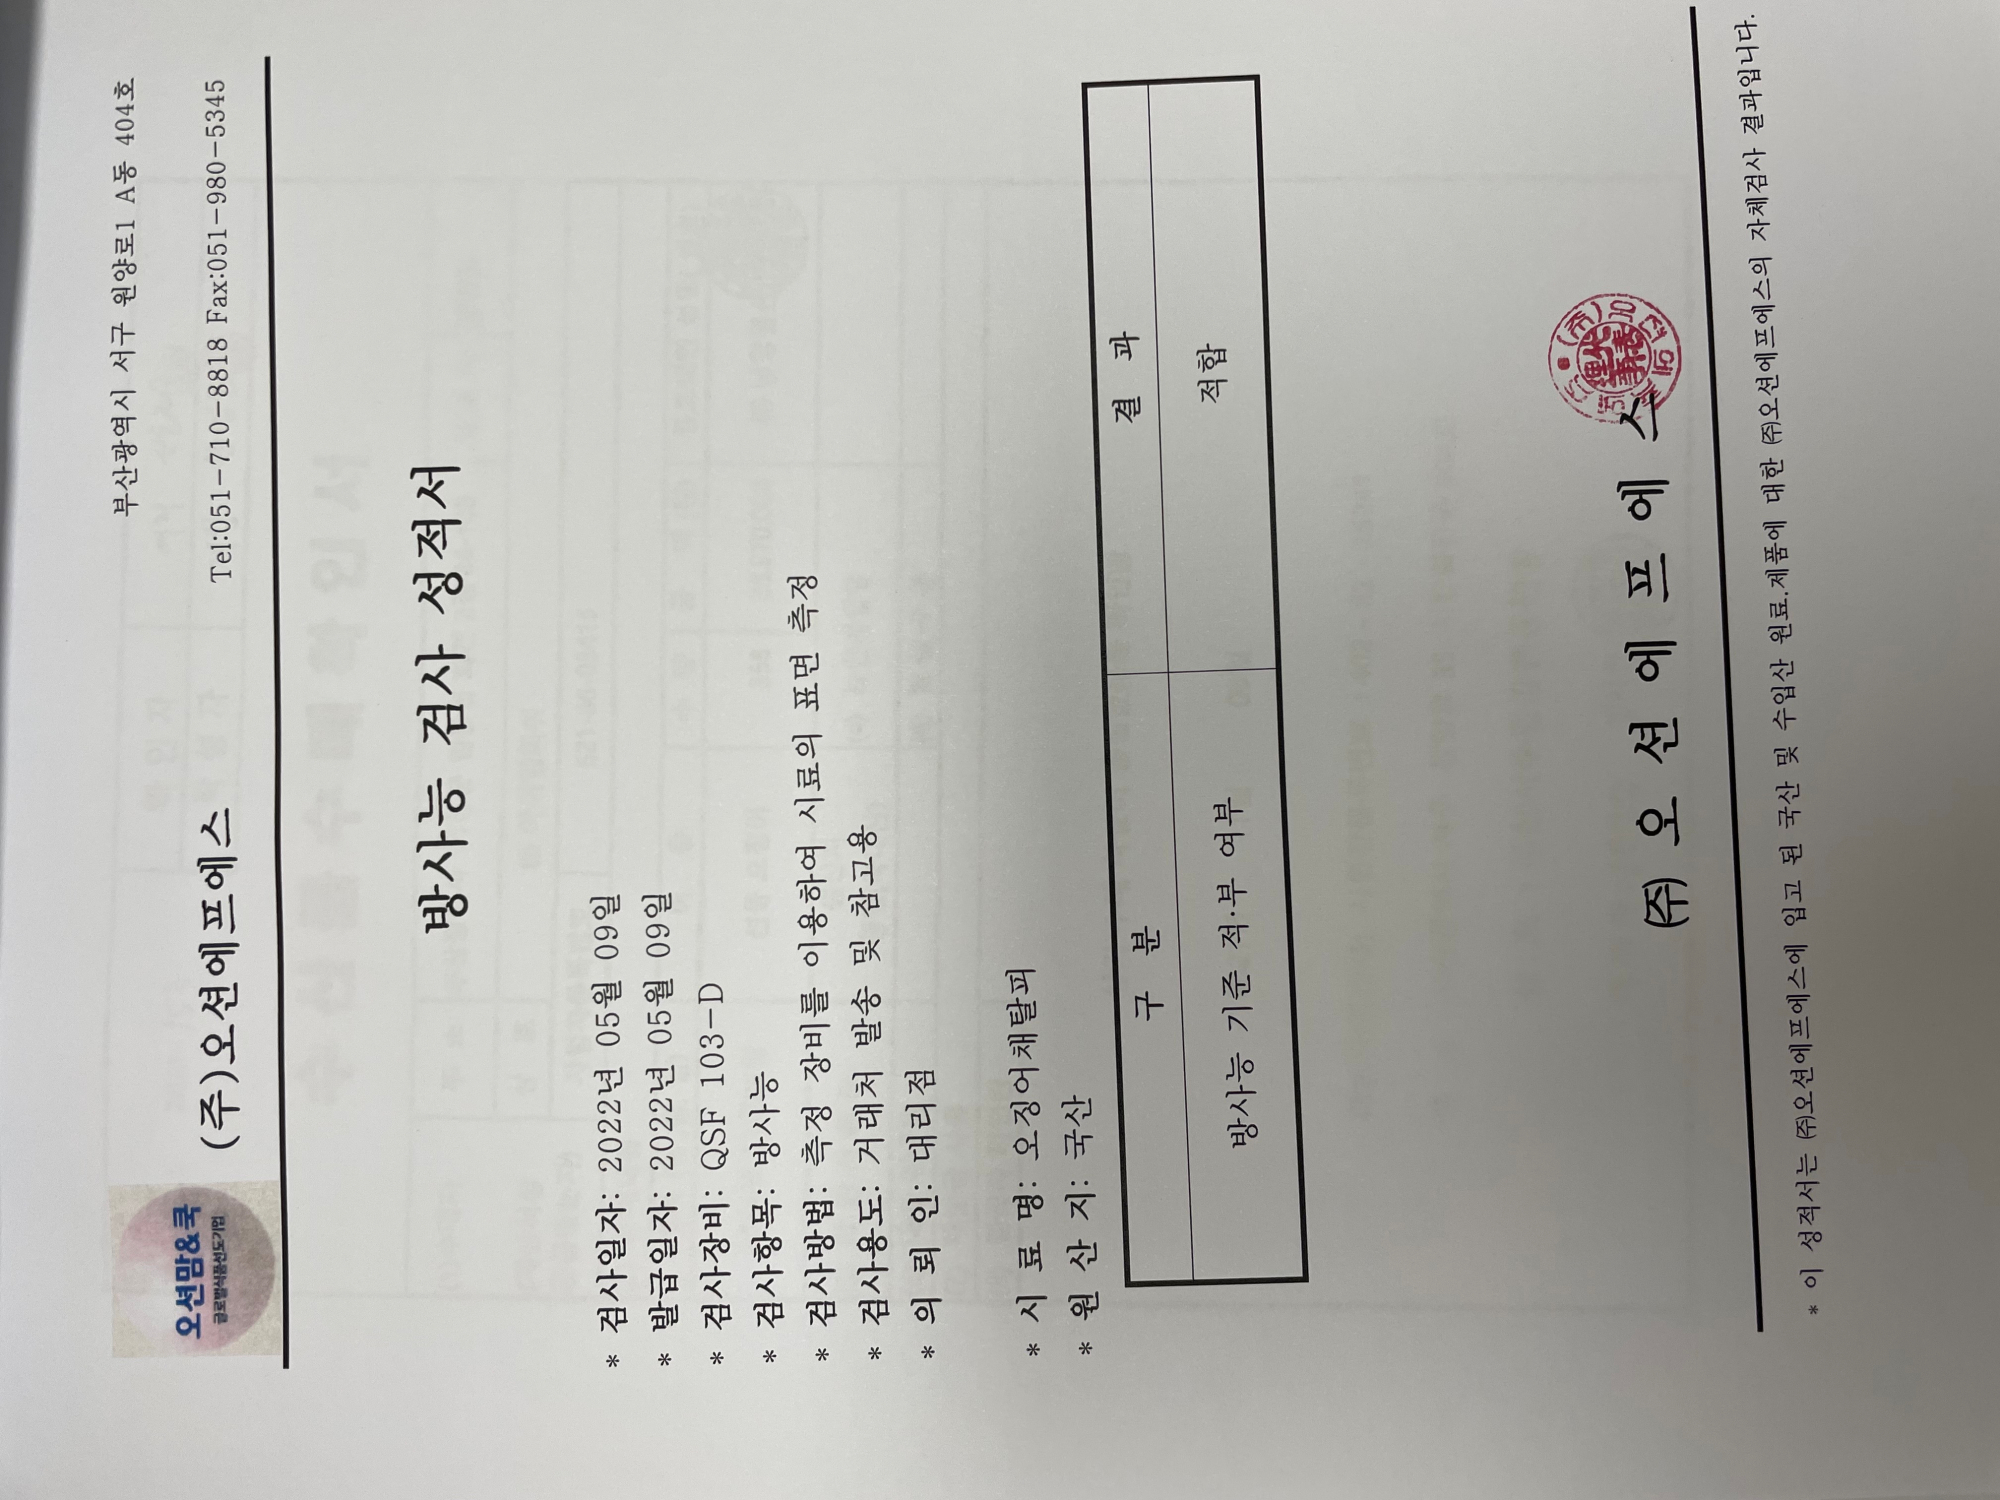 오션맘&쿡
글로벌식품선도기업
(주)오션에프에스
부산광역시 서구 원양로1 A동 404호
Tel:051-710-8818 Fax:051-980-5345
방사능 검사 성적서
* 검사일자: 2022년 05월 09일
* 발급일자: 2022년 05월 09일
* 검사장비: QSF 103-D
* 검사항목: 방사능
* 검사방법: 측정 장비를 이용하여 시료의 표면 측정
* 검사용도: 거래처 발송 및 참고용
* 의 뢰 인: 대리점
* 시 료 명: 오징어채탈피
* 원 산 지: 국산
구 분 결 과
방사능 기준 적·부 여부 적합
㈜ 오 션 에 프 에 스
* 이 성적서는 ㈜오션에프에스에 입고 된 국산 및 수입산 원료.제품에 대한 ㈜오션에프에스의 자체검사 결과입니다.